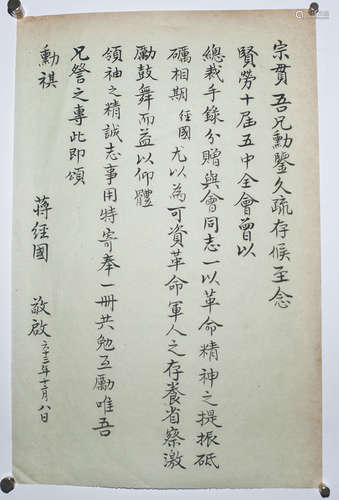 宗貫吾兄勳鑒久疏存候至念
賢勞十屆五中全會曾以
總裁手錄分贈與會同志一以革命精神之提振砥
礪相期經國尤以為可資革命軍人之存養省察激
勵鼓舞而益以仰體
領袖之精誠志事用特寄奉一冊共勉互勵唯吾
兄詧之專此即頌
勳祺
蔣經國 敬啟 六十三年十二月八日